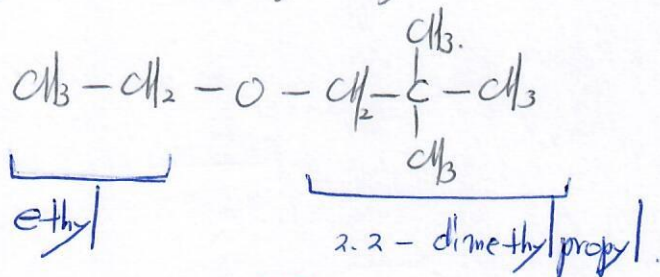 CH3.
CH3 - CH2 - O - CH2 - C - CH3
CH3
ethyl
2.2 - dimethylpropyl.